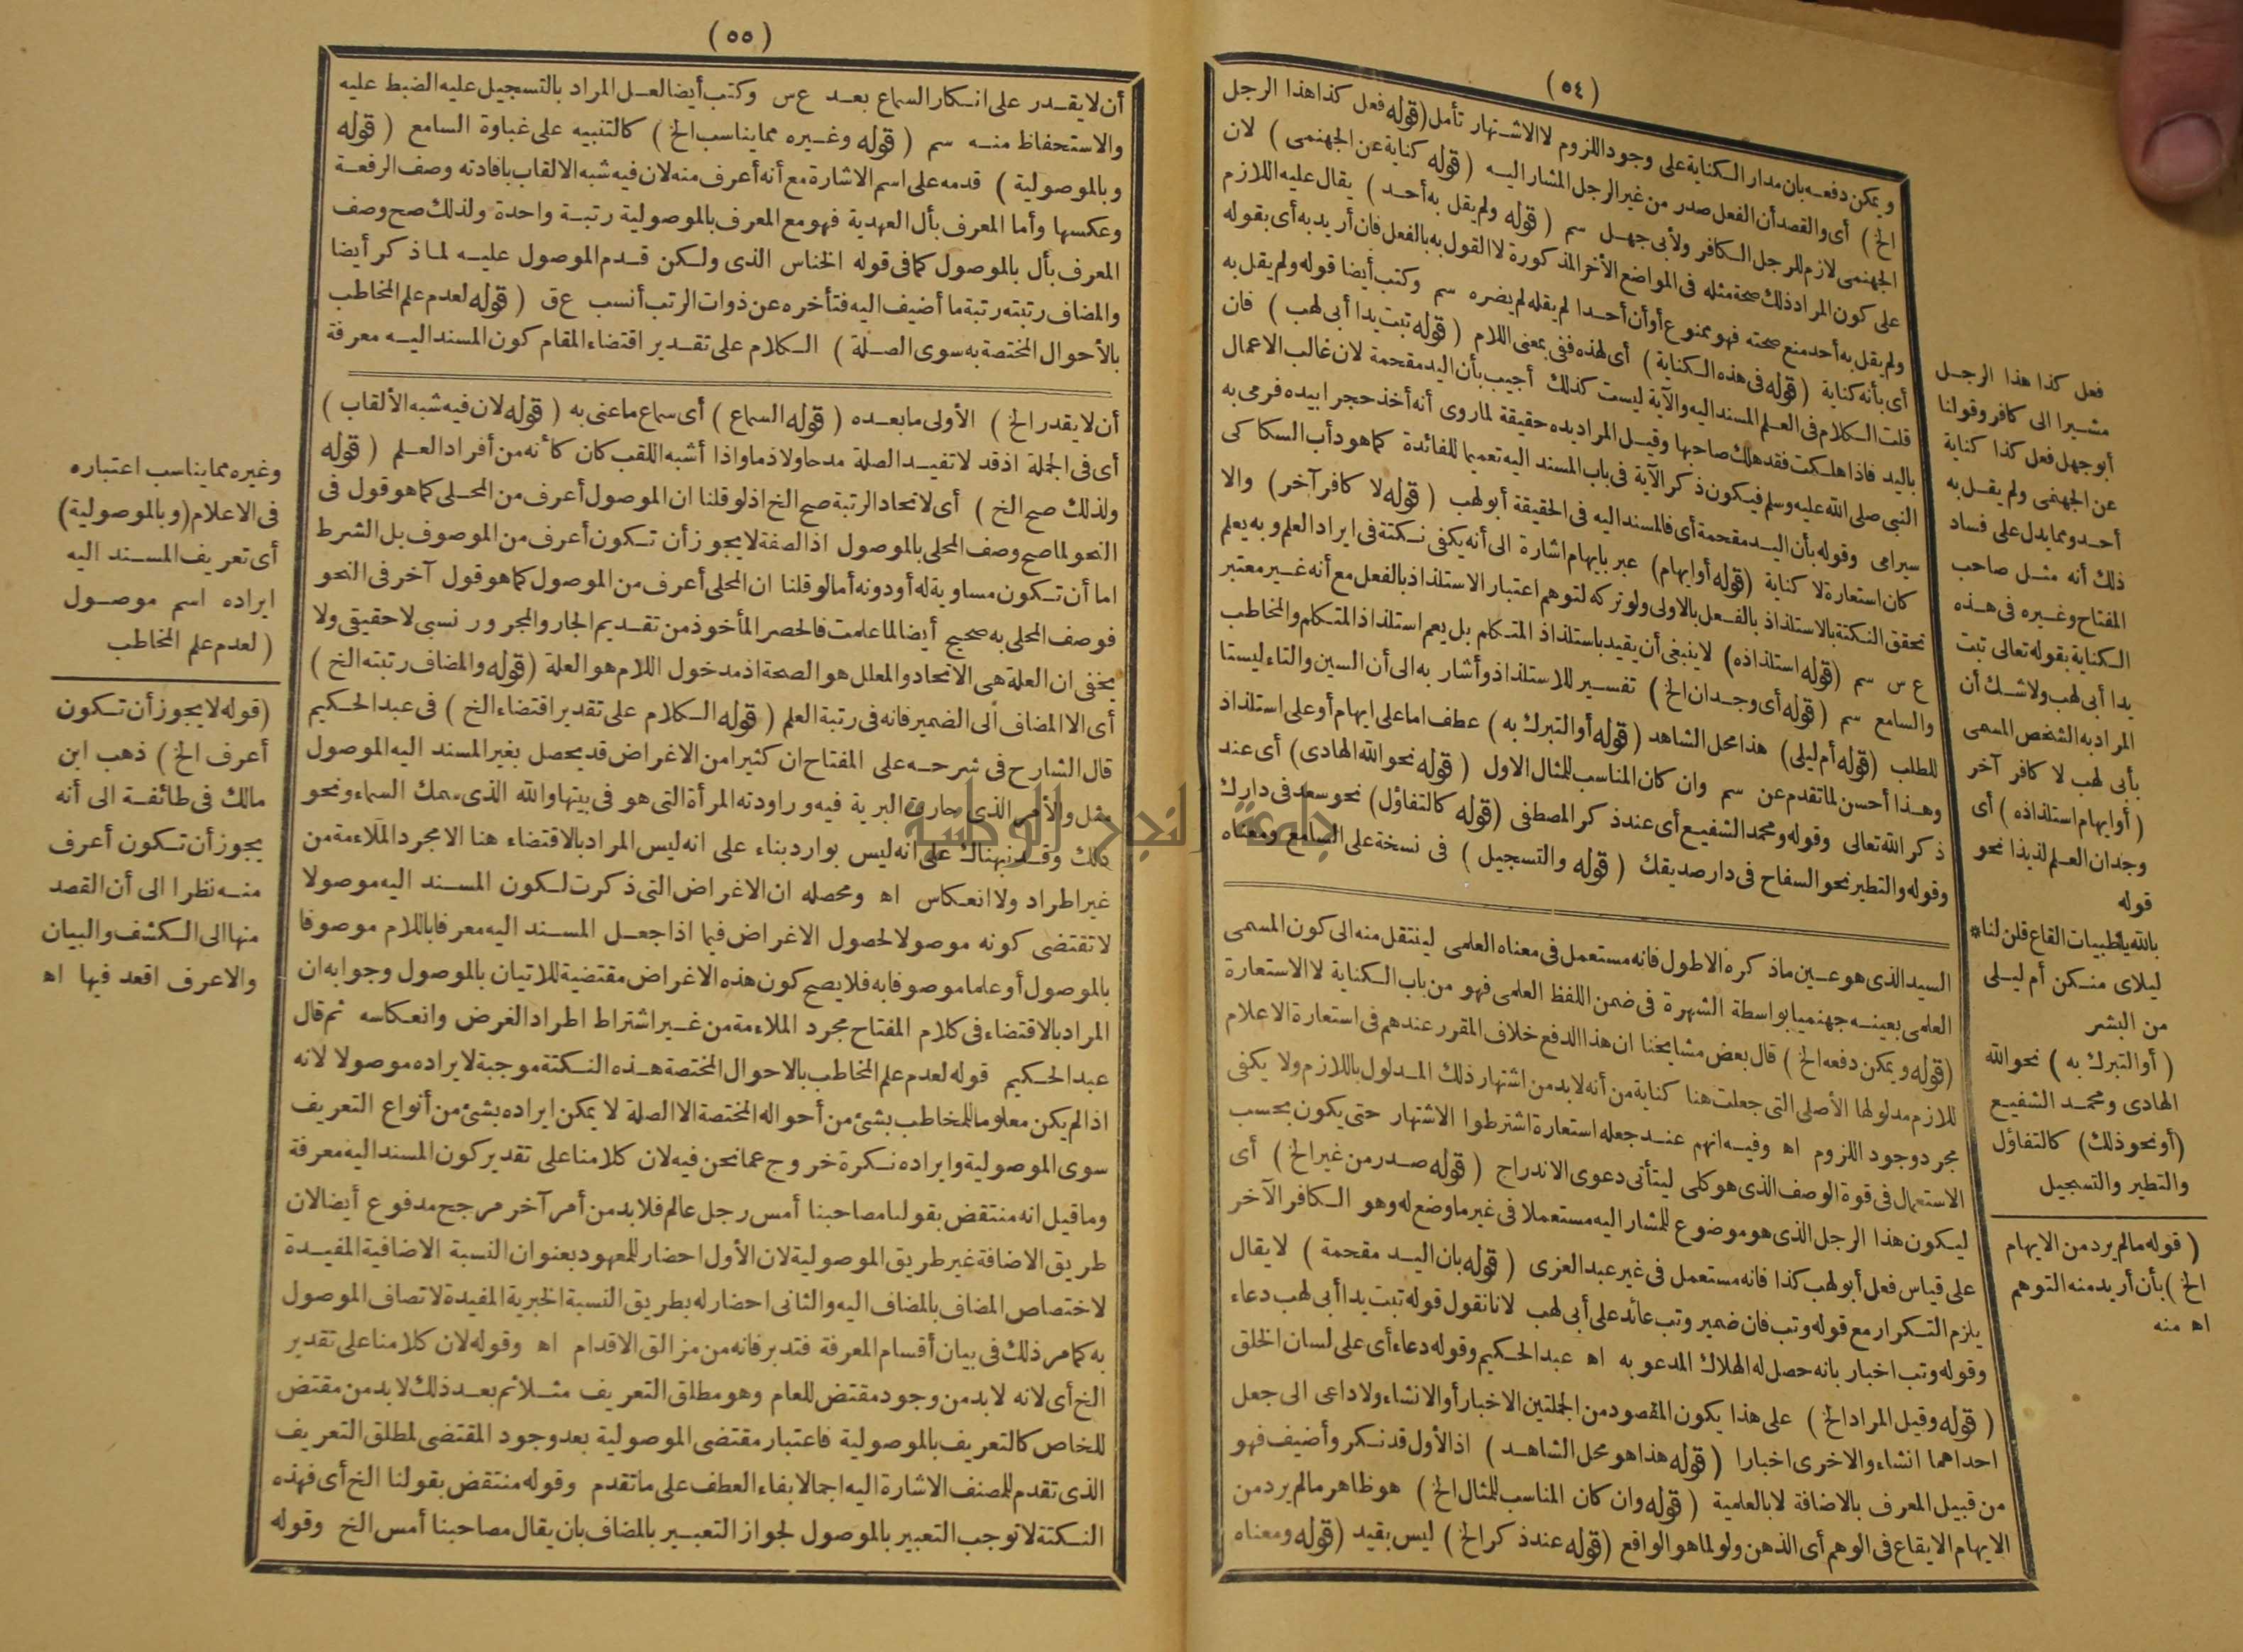 (٥٤)
ويمكن دفعه بان مدار الكناية على وجود اللزوم لا الاشتهار تأمل (قوله فعل كذا هذا الرجل
الخ) أى والقصد أن الفعل صدر من غير الرجل المشار اليه (قوله كناية عن الجهنمى) لان
الجهنمى لازم للرجل الكافر ولأبى جهل سم (قوله ولم يقل به أحد) يقال عليه اللازم
على كون المراد ذلك صحة مثله فى المواضع الأخر المذكورة لا القول به بالفعل فان أريد به أى بقوله
ولم يقل به أحد منع صحته فهو ممنوع أو أن أحدا لم يقله لم يضره سم وكتب أيضا قوله ولم يقل به
أى بأنه كناية (قوله فى هذه الكناية) أى لهذه ففى بمعنى اللام (قوله تبت يدا أبى لهب) فان
قلت الكلام فى العلم المسند اليه والآية ليست كذلك أجيب بأن اليد مقحمة لان غالب الاعمال
باليد فاذا هلكت فقد هلك صاحبها وقيل المراد يده حقيقة لما روى أنه أخذ حجرا بيده فرمى به
النبى صلى الله عليه وسلم فيكون ذكر الآية فى باب المسند اليه تعميما للفائدة كما هو دأب السكاكى
سيرامى وقوله بأن اليد مقحمة أى فالمسند اليه فى الحقيقة أبو لهب (قوله لا كافر آخر) والا
كان استعارة لا كناية (قوله أو ايهام) عبر بايهام اشارة الى أنه يكفى نكتة فى ايراد العلم وبه يعلم
تحقق النكتة بالاستلذاذ بالفعل بالاولى ولو تركه لتوهم اعتبار الاستلذاذ بالفعل مع أنه غير معتبر
ع س سم (قوله استلذاذه) لا ينبغى أن يقيد باستلذاذ المتكلم بل يعم استلذاذ المتكلم والمخاطب
والسامع سم (قوله أى وجدان الخ) تفسير للاستلذاذ وأشار به الى أن السين والتاء ليستا
للطلب (قوله أم ليلى) هذا محل الشاهد (قوله أو التبرك به) عطف اما على ايهام أو على استلذاذ
وهذا أحسن لما تقدم عن سم وان كان المناسب للمثال الاول (قوله نحو الله الهادى) أى عند
ذكر الله تعالى وقوله ومحمد الشفيع أى عند ذكر المصطفى (قوله كالتفاؤل) نحو سعد فى دارك
وقوله والتطير نحو السفاح فى دار صديقك (قوله والتسجيل) فى نسخة على السامع ومعناه
السيد الذى هو عين ما ذكره الاطول فانه مستعمل فى معناه العلمى لينتقل منه الى كون المسمى
العلمى بعينه جهنميا بواسطة الشهرة فى ضمن اللفظ العلمى فهو من باب الكناية لا الاستعارة
(قوله ويمكن دفعه الخ) قال بعض مشايخنا ان هذا الدفع خلاف المقرر عندهم فى استعارة الاعلام
للازم مدلولها الأصلى التى جعلت هنا كناية من أنه لا بد من اشتهار ذلك المدلول باللازم ولا يكفى
مجرد وجود اللزوم اه وفيه انهم عند جعله استعارة اشترطوا الاشتهار حتى يكون بحسب
الاستعمال فى قوة الوصف الذى هو كلى ليتأتى دعوى الاندراج (قوله صدر من غير الخ) أى
ليكون هذا الرجل الذى هو موضوع للمشار اليه مستعملا فى غير ما وضع له وهو الكافر الآخر
على قياس فعل أبو لهب كذا فانه مستعمل فى غير عبد العزى (قوله بان اليد مقحمة) لا يقال
يلزم التكرار مع قوله وتب فان ضمير وتب عائد على أبى لهب لانا نقول قوله تبت يدا أبى لهب دعاء
وقوله وتب اخبار بانه حصل له الهلاك المدعو به اه عبد الحكيم وقوله دعاء أى على لسان الخلق
(قوله وقيل المراد الخ) على هذا يكون المقصود من الجملتين الاخبار أو الانشاء ولا داعى الى جعل
احداهما انشاء والاخرى اخبارا (قوله هذا هو محل الشاهد) اذ الأول قد نكر وأضيف فهو
من قبيل المعرف بالاضافة لا بالعلمية (قوله وان كان المناسب للمثال الخ) هو ظاهر ما لم يرد من
الايهام الايقاع فى الوهم أى الذهن ولو لما هو الواقع (قوله عند ذكر الخ) ليس بقيد (قوله ومعناه
فعل كذا هذا الرجل
مشيرا الى كافر وقولنا
أبو جهل فعل كذا كناية
عن الجهنمى ولم يقل به
أحد ومما يدل على فساد
ذلك أنه مثل صاحب
المفتاح وغيره فى هذه
الكناية بقوله تعالى تبت
يدا أبى لهب ولا شك أن
المراد به الشخص المسمى
بأبى لهب لا كافر آخر
(أو ايهام استلذاذه) أى
وجدان العلم لذيذا نحو
قوله
بالله يا ظبيات القاع قلن لنا*
ليلاى منكن أم ليلى
من البشر
(أو التبرك به) نحو الله
الهادى ومحمد الشفيع
(أو نحو ذلك) كالتفاؤل
والتطير والتسجيل
(قوله ما لم يرد من الايهام
الخ) بأن أريد منه التوهم
اه منه
(٥٥)
أن لا يقدر على انكار السماع بعد ع س وكتب أيضا لعل المراد بالتسجيل عليه الضبط عليه
والاستحفاظ منه سم (قوله وغيره مما يناسب الخ) كالتنبيه على غباوة السامع (قوله
وبالموصولية) قدمه على اسم الاشارة مع أنه أعرف منه لان فيه شبه الالقاب بافادته وصف الرفعة
وعكسها وأما المعرف بأل العهدية فهو مع المعرف بالموصولية رتبة واحدة ولذلك صح وصف
المعرف بأل بالموصول كما فى قوله الخناس الذى ولكن قدم الموصول عليه لما ذكر أيضا
والمضاف رتبته رتبة ما أضيف اليه فتأخره عن ذوات الرتب أنسب ع ق (قوله لعدم علم المخاطب
بالأحوال المختصة به سوى الصلة) الكلام على تقدير اقتضاء المقام كون المسند اليه معرفة
أن لا يقدر الخ) الأولى ما بعده (قوله السماع) أى سماع ما عنى به (قوله لان فيه شبه الألقاب)
أى فى الجملة اذ قد لا تفيد الصلة مدحا ولا ذما واذا أشبه اللقب كان كأنه من أفراد العلم (قوله
ولذلك صح الخ) أى لاتحاد الرتبة صح الخ اذ لو قلنا ان الموصول أعرف من المحلى كما هو قول فى
النحو لما صح وصف المحلى بالموصول اذ الصفة لا يجوز أن تكون أعرف من الموصوف بل الشرط
اما أن تكون مساوية له أو دونه أما لو قلنا ان المحلى أعرف من الموصول كما هو قول آخر فى النحو
فوصف المحلى به صحيح أيضا لما علمت فالحصر المأخوذ من تقديم الجار والمجرور نسبى لا حقيقى ولا
يخفى ان العلة هى الاتحاد والمعلل هو الصحة اذ مدخول اللام هو العلة (قوله والمضاف رتبته الخ)
أى الا المضاف الى الضمير فانه فى رتبة العلم (قوله الكلام على تقدير اقتضاء الخ) فى عبد الحكيم
قال الشارح فى شرحه على المفتاح ان كثيرا من الاغراض قد يحصل بغير المسند اليه الموصول
مثل والأمر الذى حارت البرية فيه وراودته المرأة التى هو فى بيتها والله الذى سمك السماء ونحو
ذلك وقد نبهناك على انه ليس بوارد بناء على انه ليس المراد بالاقتضاء هنا الا مجرد الملاءمة من
غير اطراد ولا انعكاس اه ومحصله ان الاغراض التى ذكرت لكون المسند اليه موصولا
لا تقتضى كونه موصولا لحصول الاغراض فيما اذا جعل المسند اليه معرفا باللام موصوفا
بالموصول أو علما موصوفا به فلا يصح كون هذه الاغراض مقتضية للاتيان بالموصول وجوابه ان
المراد بالاقتضاء فى كلام المفتاح مجرد الملاءمة من غير اشتراط اطراد الغرض وانعكاسه ثم قال
عبد الحكيم قوله لعدم علم المخاطب بالاحوال المختصة هذه النكتة موجبة لايراده موصولا لانه
اذا لم يكن معلوما للمخاطب بشئ من أحواله المختصة الا الصلة لا يمكن ايراده بشئ من أنواع التعريف
سوى الموصولية وايراده نكرة خروج عما نحن فيه لان كلامنا على تقدير كون المسند اليه معرفة
وما قيل انه منتقض بقولنا مصاحبنا أمس رجل عالم فلا بد من أمر آخر مرجح مدفوع أيضا لان
طريق الاضافة غير طريق الموصولية لان الأول احضار للمعهود بعنوان النسبة الاضافية المفيدة
لاختصاص المضاف بالمضاف اليه والثانى احضار له بطريق النسبة الخبرية المفيدة لاتصاف الموصول
به كما مر ذلك فى بيان أقسام المعرفة فتدبر فانه من مزالق الاقدام اه وقوله لان كلامنا على تقدير
الخ أى لانه لا بد من وجود مقتض للعام وهو مطلق التعريف مثلا ثم بعد ذلك لا بد من مقتض
للخاص كالتعريف بالموصولية فاعتبار مقتضى الموصولية بعد وجود المقتضى لمطلق التعريف
الذى تقدم للمصنف الاشارة اليه اجمالا بفاء العطف على ما تقدم وقوله منتقض بقولنا الخ أى فهذه
النكتة لا توجب التعبير بالموصول لجواز التعبير بالمضاف بان يقال مصاحبنا أمس الخ وقوله
وغيره مما يناسب اعتباره
فى الاعلام (وبالموصولية)
أى تعريف المسند اليه
ايراده اسم موصول
(لعدم علم المخاطب
(قوله لا يجوز أن تكون
أعرف الخ) ذهب ابن
مالك فى طائفة الى أنه
يجوز أن تكون أعرف
منه نظرا الى أن القصد
منها الى الكشف والبيان
والاعرف اقعد فيها اه
جامعة النجاح الوطنية